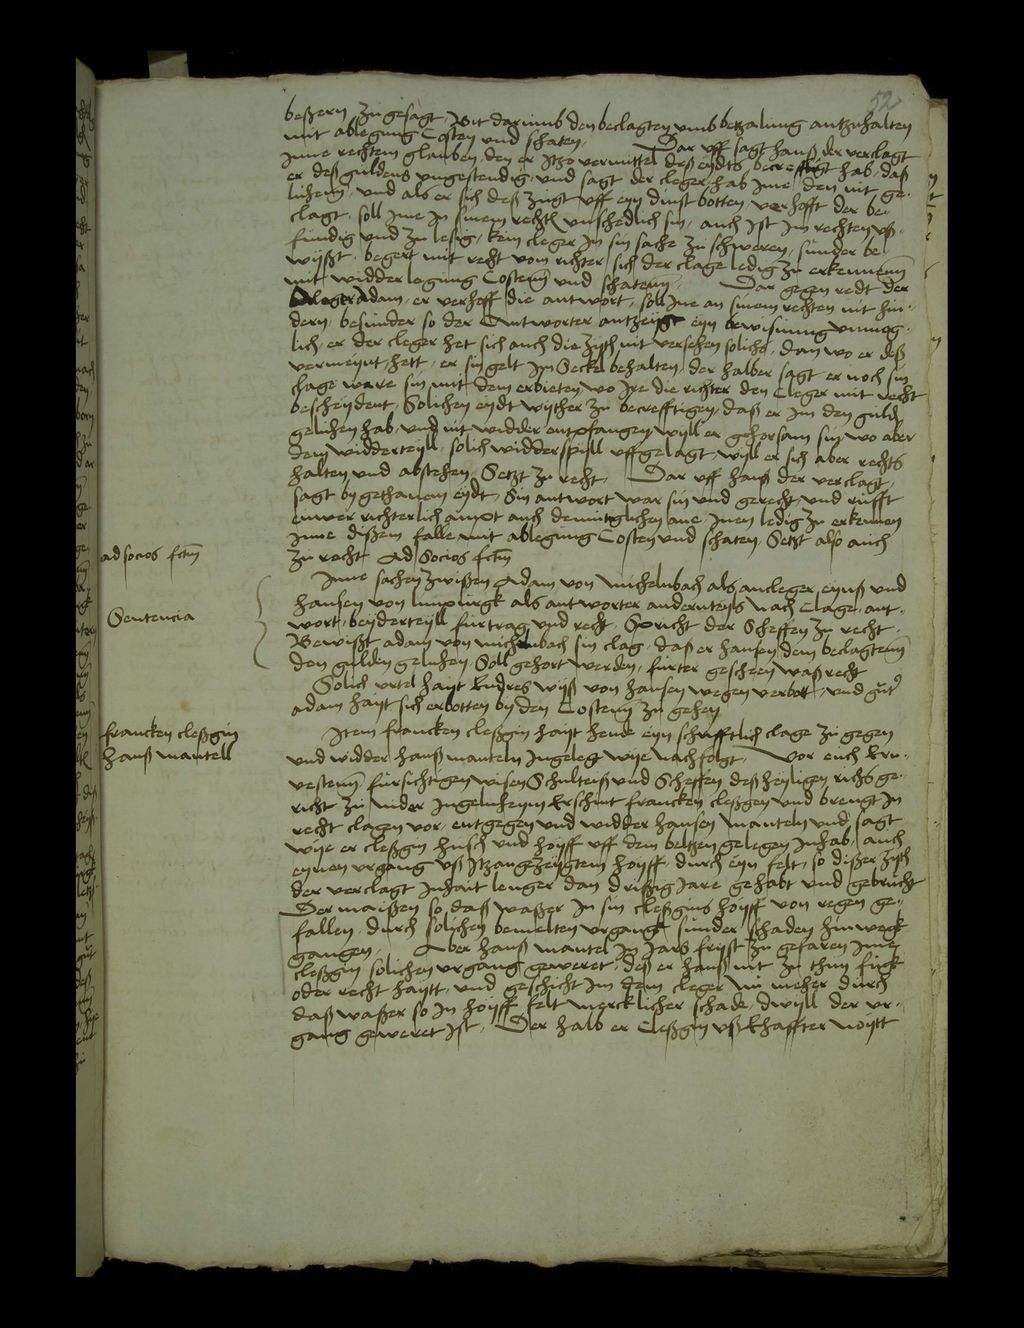 52
beßern zu gesagt Bit darumb den beclagten umb betzalung antzuhalten
mit ablegung Costen und schaten. Dar uff sagt hanß der verclagt
Inne rechtem glauben den er Itzo vermittel deß eydts becrefftigt hab, daß
er deß guldens ungestendig, und sagt der cleger hab Ime den nit ge-
lichenn, und als er sich deß zugt uff eyn dinst botten, verhofft der be-
clagt, soll Ime In sinem rechten unschedlich sin, auch Ist Im rechten uß-
fundig und zu lesig, kein cleger In sin sache zu schweren, sunder be-
wyßt, begert mit recht vom richter sich der clage ledig zu erkennenn
mit widder legung Costenn und schatenn. Dar gegen redt der
Cleger Adam, er verhoff die antwort, soll Ine an sinem rechten nit hin-
dern, besunder so der Antworter antzeigt eyn bewisunng unmog-
lich, er der cleger het sich auch die zyth nit versehen solichs, dan wo er deß
vermeynt hett, er sin gelt Im Seckel behalten, der halber sagt er noch sin
clage ware sin mit dem erbieten, wo Ine die richter den Cleger mit recht
bescheydent, Solichen eydt wyther zu becrefftigen, daß er Im den guld
gelichen hab, und nit widder entpfangen, wyll er gehorsam sin, wo aber
dem widderteyll, solich widderspyll uffgelagt, wyll er sich aber rechts
halten und abstehen, Setzt zu recht. Dar uff hanß der verclagt,
sagt by gethanem eydt, Sin antwort war sin und gerecht und rufft
euwer richterlich ampt auch demuttglichen ane Inen ledig zu erkennen
Inne dissem falle mit ablegung Costen und schaten, Setzt also auch
zu recht Ad Socios fctm
ad socios fctm
Inne sachen zwißen Adam von Michelnbach als ancleger, eynß und
hansen von limpurgk als antworter anderntteyls Nach Clage, ant-
Sentencia
wort, beyderteyll furtrag und recht, Spricht der Scheffen zu recht,
Bewißt adam von michelnbach sin clag, daß er hansen dem beclagtenn
den gulden gelichen, Soll gehort werden, furter gescheen waß recht
Solich urtel hayt Endres wyß von hansen wegen verbott, und
adam hayt sich erbotten by den Costenn zu gehen
francken cleßgin
hanß mantell
Item francken cleßgin hayt heude eyn schrifftlich clage zu gegen
und widder hanß manteln Ingelegt wye nach folgt, Vor euch Ern-
vestenn fursichtigen wisen Schulteiß und Scheffen deß heyligen richs ge-
richt zu nider Ingelnheym Erschint francken cleßgen und brengt In
recht clagen vor, entgegen und widder hansen manteln und sagt
wye er cleßgin husch und hoyff uff dem beltzen gelegen Inhab, auch
eynen urgang uß Itzangezeygtem hoyff, durch eyn felt, so dißer zyth
der verclagt Inhait lenger dan drißig Jare gehabt und gebrucht
Der maißen so daß waßer In sin cleßgins hoyff von regen ge-
fallen, durch solichen bemelten urgangk sunder schaden hinwegk
gangen. Aber hanß mantel In Jars fryst zu gefaren Ime
cleßgin solichen urgang geweret, deß er hanß nit zu thun fug
oder recht haytt, und geschicht Im dem cleger nu meher durch
daß waßer so In hoyff felt mercklicher schade, dwyll der ur-
gang geweret Ist, Der halb er Cleßgin uß Ehaffter noytt